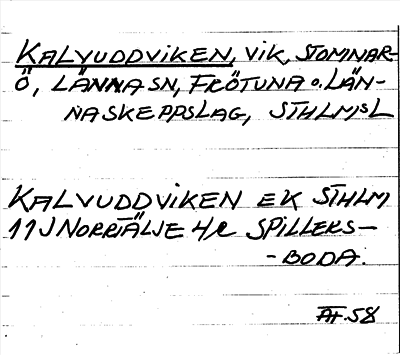 KALVUDDVIKEN, VIK, STOMNAR-
Ö, LÄNNA SN, FRÖTUNA O. LÄN-
NA SKEPPSLAG, STHLMSL
KALVUDDVIKEN EK STHLM
11J NORRTÄLJE 4/e SPILLERS-
-BODA.
AT. 58